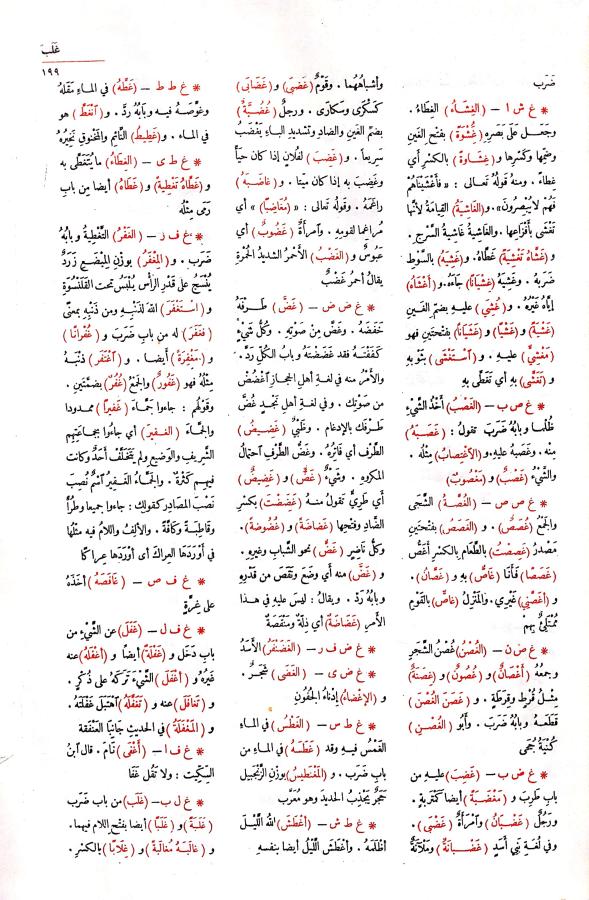 غَلَبَ
١٩٩
ضَرَب
* غ ش ا – (الغِشَاءُ) الغِطَاءُ.
وجَعَل عَلَى بَصَرِهِ (غُِشْوَةً) بفتح الغَينِ
وضمّها وكَسْرِها و (غِشَاوةً) بالكسْرِ أي
غطاءً. ومنهُ قولُهُ تعالى : «فأَغْشَيْنَاهُمْ
فَهُمْ لا يُبْصِرُونَ». و(الغَاشِيَةُ) القِيَامَةُ لأنَّها
تَغْشَى بأَفْزَاعِها. والغَاشِيَةُ غَاشِيَةُ السَّرْجِ.
و (غَشَّاهُ تَغْشِيَةً) غَطَّاهُ. و(غَشِيَهُ) بالسَّوْطِ
ضَرَبَهُ. وغَشِيَهُ (غِشْيَانًا) جَاءَهُ. و(أَغْشَاهُ)
إيَّاهُ غَيْرُهُ. و (غُشِيَ) عليـهِ بضمّ الغَـينِ
(غَشْيَةً) و (غَشْيًا) و (غَشَيَانًا) بفتحتين فهو
(مَغْشِيٌّ) عليهِ. و (اسْتَغْشَى) بثَوْبِهِ
و (تَغَشَّى) بِهِ أي تَغَطَّى بِهِ
* غ ص ب – (الغَصْبُ) أَخْذُ الشَّيْءِ
ظُلْمًا وبابُهُ ضَرَبَ تقولُ : (غَصَبَهُ)
مِنْهُ. وغَصَبَهُ عليهِ. و(الاغْتِصَابُ) مِثْلُه.
والشَّيْءُ (غَصْبٌ) و(مَغْصُوبٌ)
* غ ص ص – (الغُصَّةُ) الشَّجَى
والجَمْعُ (غُصَصٌ). و (الغَصَصُ) بفتحتين
مَصْدَرُ (غَصِصْتُ) بالطَّعَامِ بالكَسْرِ أغَصُّ
(غَصَصًا) فأَنَا (غَاصٌّ) بِهِ و (غَصَّانُ).
و (أَغَصَّنِي) غَيْرِي. والمَنْزِلُ (غَاصٌّ) بالقَوْمِ
مُمْتَلِئٌ بِهِمْ
* غ ص ن – (الغُصْنُ) غُصْنُ الشَّجَرِ
وجمعُهُ (أَغْصَانٌ) و (غُصُونٌ) و (غِصَنَةٌ)
مِثْلُ قُرْطٍ وقِرَطَةٍ. و (غَصَنَ الغُصْنَ)
قَطَعَـهُ وبابُهُ ضَرَبَ. وأَبُو (الغُصْنِ)
كُنْيَةُ جُحَى
* غ ض ب – (غَضِبَ) عليهِ من
بابِ طَرِبَ و (مَغْضَبَةً) أيضا كَمَتْرَبةٍ.
ورَجُلٌ (غَضْبَانُ) وٱمْرَأَةٌ (غَضْبَى).
و في لُغَـةِ بَنِي أَسَدٍ (غَضْبَـانَةٌ) ومَلْآنَةٌ
وأشباهُهُما. وقَوْمٌ (غَضْبَى) و(غَضَابَى)
كَسَكْرَى وسَكَارَى. ورجلٌ (غُضُبَّةٌ)
بضمّ الغَين والضاد وتشديد الباء يَغْضَبُ
سَرِيعا. و (غَضِبَ) لفُلانٍ إذا كان حَيًّا
وغَضِبَ بِهِ إذا كان مَيِّتا. و (غَاضَـبَهُ)
رَاغَمَهُ. وقَولُهُ تعالى : «(مُغَاضِبًا)» أي
مُراغِما لقَومِهِ. وٱمرأَةٌ (غَضُوبٌ) أي
عَبُوسٌ و(الغَضْبُ) الأحمرُ الشديدُ الحُمْرَةِ
يقالُ أحمر غَضْبٌ
* غ ض ض – (غَضَّ) طَـرْفَهُ
خَفَضَهُ. وغَضَّ مِنْ صَوْتِهِ. وكُلُّ شَيْءٍ
كَفَفْتَهُ فقد غَضَضْتَهُ وبابُ الكُلِّ رَدّ.
والأَمْرُ منه في لغةِ أهلِ الحجازِ ٱغْضُضْ
من صَوْتِكَ. وفي لغةِ أهلِ نَجْـدٍ غُضَّ
طَرْفَكَ بالإدغامِ. وظَبْيٌ (غَضِـيضُ)
الطَّرْفِ أي فَاتِرُهُ. وغَضُّ الطَّرْفِ ٱحتمالُ
المَكرُوهِ. وشَيْءٌ (غَضٌّ) و (غَضِيضٌ)
أي طَرِيٌّ تَقُولُ منـهُ (غَضِضْتَ) بكسْرِ
الضَّادِ وفتحِها (غَضَاضَةً) و (غُضُوضَةً).
وكُلُّ ناضِرٍ (غَضٌّ) نحوُ الشَّبابِ وغيرِهِ.
و (غَضَّ) منه أي وَضَعَ ونَقَصَ من قَدْرِهِ
وبابُهُ رَدّ. ويقالُ : ليس عليهِ في هـذا
الأَمْرِ (غَضَاضَةٌ) أي ذِلَّةٌ ومَنْقَصَةٌ
* غ ض ف ر – (الغَضَنْفَرُ) الأَسَدُ
* غ ض ى – (الغَضَى) شَجَرٌ.
و (الإغْضَاءُ) إِدْنَاءُ الجُفُونِ
* غ ط س – (الغَطْسُ) في المـاءِ
الغَمْسُ فيـهِ وقد (غَطَسَهُ) في المـاءِ من
بابِ ضَرَبَ. و (المَغْنَطِيسُ) بوَزْنِ الزَّنْجَبِيلِ
حَجَرٌ يَجْذِبُ الحَديدَ وهو مُعَرَّب
* غ ط ش – (أَغْطَشَ) اللهُ اللَّيْـلَ
أَظْلَمَهُ. وأَغْطَشَ اللَّيْلُ أيضا بنفسِهِ
* غ ط ط – (غَطَّهُ) في الماءِ مَقَلَهُ
وغَوَّصَـهُ فيـهِ وبابُهُ رَدّ. و (ٱنْغَطَّ) هو
في الماءِ. و (غَطِيطُ) النَّائِمِ والمَخْنُوقِ نَخِيرُهُ
* غ ط ى – (الغِطَاءُ) ما يُتَغَطَّى بِهِ
و (غَطَّاهُ تَغْطِيَةً) و (غَطَاهُ) أيضا من باب
رَمَى مِثْلُهُ
* غ ف ر – (الغَفْرُ) التَّغْطِيَةُ وبابُهُ
ضَرَب. و (المِغْفَرُ) بوزنِ المِبْضَـعِ زَرَدٌ
يُنْسَجُ على قَدْرِ الرَّأْسِ يُلْبَسُ تحتَ القَلَنْسُوَةِ
و (ٱسْتَغْفَرَ) اللهَ لذَنْبِـهِ ومن ذَنْبِهِ بمعنًى
(فغَفَرَ) له من بابِ ضَرَبَ و (غُفْرَانًا)
و (مَغْفِرَةً) أيضا. و (ٱغْتَفَرَ) ذَنْبَـهُ
مِثْلُهُ فهو (غَفُورٌ) والجَمْعُ (غُفُرٌ) بضمّتين.
وقَوْلُهُم : جاءوا جَمَّاءَ (غَفِيرًا) ممدودا
والجَمَّاءَ (الغَـفِيرَ) أي جاءوا بجماعَتِهم
الشَّرِيفُ والوَضِيعُ ولم يَتَخَلَّفْ أَحَدٌ وكانت
فِيهِـم كَثْرَةٌ. والجَمَّاءُ الغَـفِيرَ ٱسْمٌ نُصِبَ
نَصْبَ المَصَادِرِ كقولك : جاءوا جميعا وطُرًّا
وقاطِبَـةً وكافَّةً. والألِفُ واللامُ فيه مِثْلُها
في أَوْرَدَهَا العِراكَ أى أوْرَدَهَا عِرَاكًا
* غ ف ص – (غَافَصَهُ) أَخَذَهُ
على غِرَّةٍ
* غ ف ل – (غَفَلَ) عن الشَّيْءِ من
بابِ دَخَلَ و (غَفْلَةً) أيضًا و (أَغْفَلَهُ) عنه
غَيْرُهُ و (أَغْفَلَ) الشَّيْءَ تَرَكَهُ على ذُكْرٍ.
و (تَغَافَلَ) عنه و (تَغَفَّلَهُ) ٱهْتَبَلَ غَفْلَتَهُ.
و (المَغْفَلَةُ) في الحديثِ جانِبَا العَنْفَقةِ
* غ ف ا – (أَغْفَى) نَامَ. قال ٱبنُ
السِّكِّيت : ولا تَقُل غَفَا
* غ ل ب – (غَلَبَ) من باب ضَرَبَ
(غَلَبَةً) و (غَلَبًا) أيضا بفتحِ اللامِ فيهما.
و (غَالَبَـهُ مُغَالَبَةً) و (غِلَابًا) بالكسْرِ.